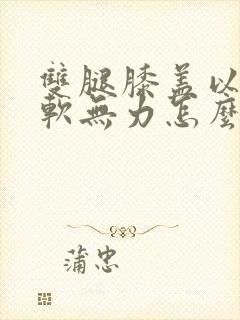 雙腿膝盖以
軟無力怎麼
蒲忠